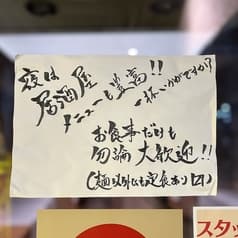 夜は
居酒屋
メニューも豊富!!
一杯いかがですか?
お食事だけも
勿論大歓迎!!
(麺以外にも定食あり〼)
スタッ